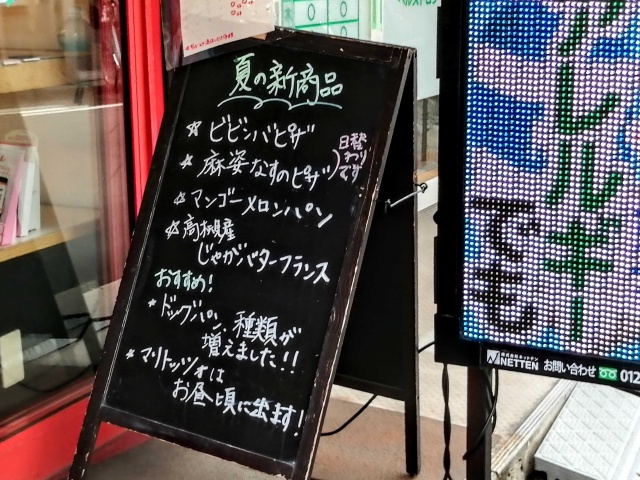 夏の新商品
☆ ビビンバピザ
☆ 麻婆なすのピザ
日替わりです
☆ マンゴーメロンパン
☆ 高槻産
じゃがバターフランス
おすすめ!
* ドッグパン、種類が
増えました!!
* マリトッツォは
お昼頃に出ます!
アレルギー
でも
株式会社ネットテン
NETTEN
お問い合わせ
012